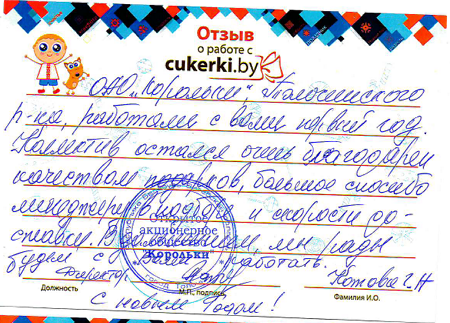 Отзыв
о работе с
cukerki.by
ОАО "Корольки" Толочинского
р-на, работали с вами первый год.
Коллектив остался очень благодарен
качеством подарков, большое спасибо
менеджеру и скорости до-
ставки. В дальнейшем, мы рады
будем с Вами работать.
Директор Котова Г.Н
Должность
М.П., подпись
Фамилия И.О.
С новым Годом!
Открытое
акционерное
общество
Корольки